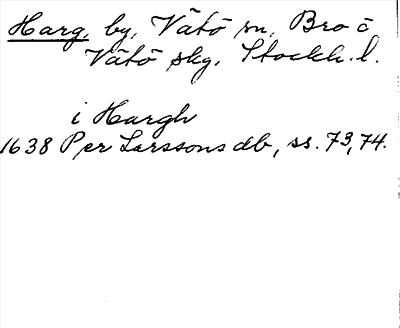 Harg, by, Vätö sn, Bro o
Vätö skg, Stockh. l.
i Hargh
1638 Per Larssons db, ss. 73, 74.